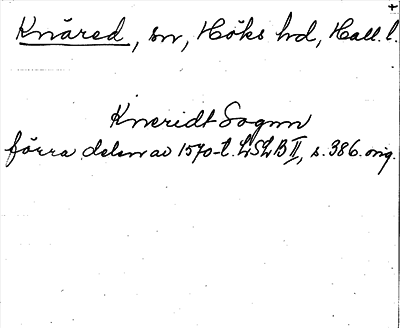 Knäred, sn, Höks hd, Hall. l.
Kneridt Sognn
förra delen av 1570-t. LSLB II, s. 386. orig.